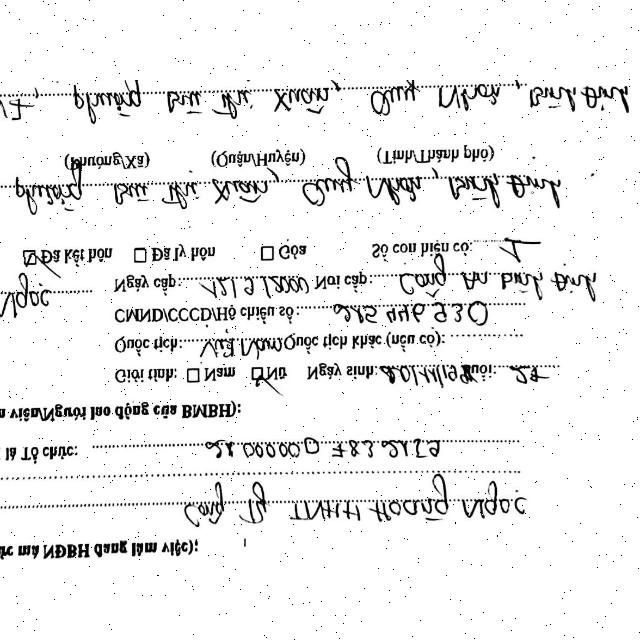 mà NĐBH đang làm việc);
Công Ty TNHH Hoàng Ngọc
là Tổ chức:
viên/Người lao động của BMBH):
Giới tính: Nam Nữ Ngày sinh: Tuổi: 27
Quốc tịch: Việt Nam Quốc tịch khác (nếu có):
CMND/CCCD/Hộ chiếu số: 215 446 930
Ngọc Ngày cấp: 12/9/2000 Nơi cấp: Công An Bình Định
Đã kết hôn Đã ly hôn Góa Số con hiện có: 1
phường Bùi Thị Xuân, Quy Nhơn, Bình Định
(Phường/Xã) (Quận/Huyện) (Tỉnh/Thành phố)
phường Bùi Thị Xuân, Quy Nhơn, Bình Định